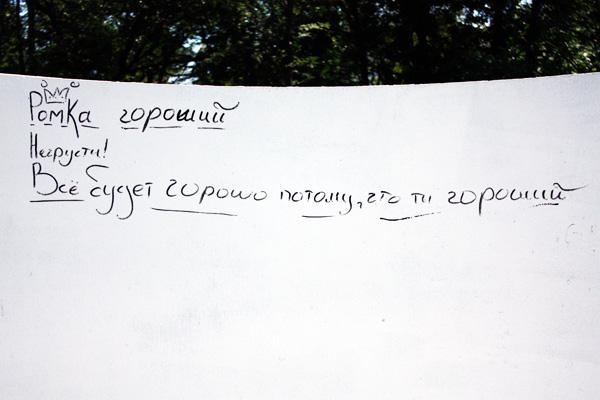 Ромка гороший
Негрусти!
Всё будет горошо потому, что ти гороший